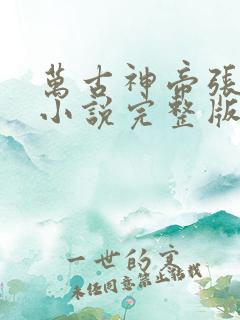 萬古神帝張
小說完整版
一世的宴
未经同意禁止转载